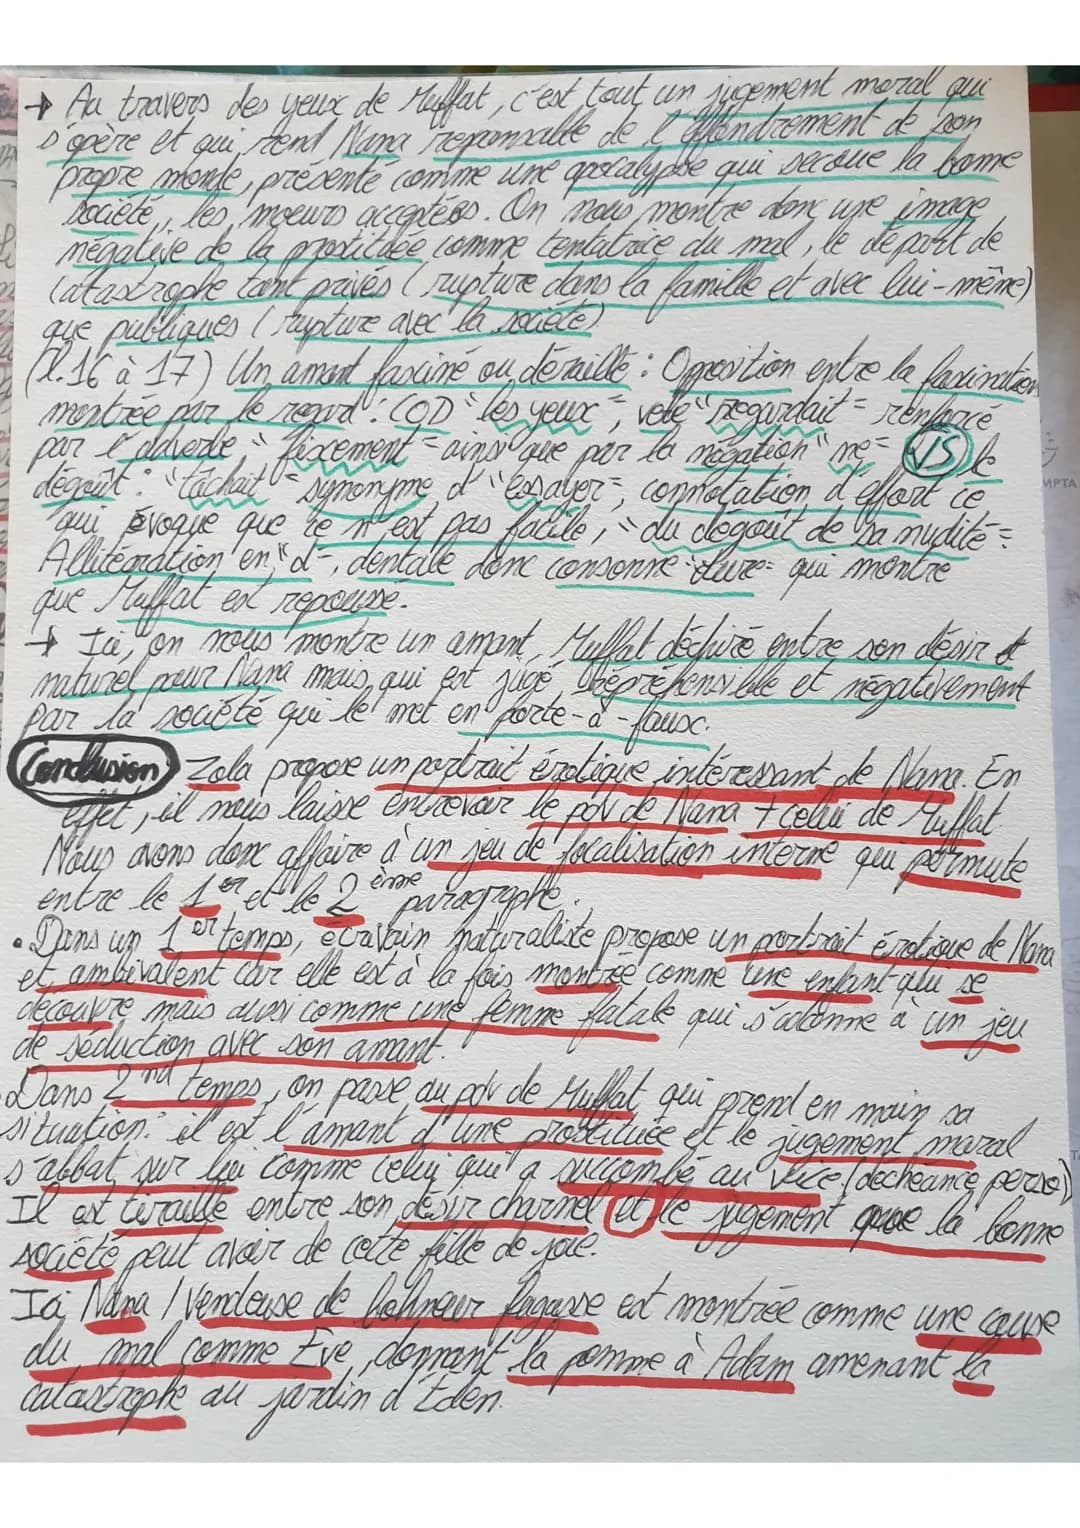 → Au travers des yeux de Muffat, c'est tout un jugement moral qui
s'opère et qui rend Nana reponsable de l'effondrement de son
propre monde, présenté comme une apocalypse qui secoue la bonne
société, les moeurs acceptées. On nous montre donc une image
négative de la prostituée comme tentatrice du mal, le départ de
catastrophe tant privés (rupture dans la famille et avec lui-même)
que publiques (rupture avec la société)
(l.16 à 17) Un amant fasciné ou déraillé : Opposition entre la fascination
montrée par le regard : COD "les yeux", verbe "regardait" renforcé
par l'adverbe "fixement" ainsi que par la négation "ne" VS le
dégoût : "tâchait" synonyme d'"essayer", connotation d'effort ce
qui évoque que ce n'est pas facile, "du dégoût de sa nudité" :
Allitération en "d", dentale donc consonne "dure" qui montre
que Muffat est repoussé.
→ Ici, on nous montre un amant, Muffat déchiré entre son désir
naturel pour Nana mais qui est jugé répréhensible et négativement
par la société qui le met en porte-à-faux.
Conclusion Zola propose un portrait érotique intéressant de Nana. En
effet, il nous laisse entrevoir le pdv de Nana + celui de Muffat.
Nous avons donc affaire à un jeu de focalisation interne qui permute
entre le 1er et le 2ème paragraphe.
• Dans un 1er temps, écrivain naturaliste propose un portrait érotique de Nana
et ambivalent car elle est à la fois montrée comme une enfant qui se
découvre mais aussi comme une femme fatale qui s'adonne à un jeu
de séduction avec son amant.
• Dans 2nd temps, on passe au pdv de Muffat qui prend en main sa
situation : il est l'amant d'une prostituée et le jugement moral
s'abbat sur lui comme celui qui a succombé au vice (déchéance perso)
Il est tiraillé entre son désir charnel et le jugement que la bonne
société peut avoir de cette fille de joie.
Ici Nana / Vendeuse de bohneur fugasse est montrée comme une cause
du mal comme Eve, donnant la pomme à Adam amenant la
catastrophe au jardin d'Éden.